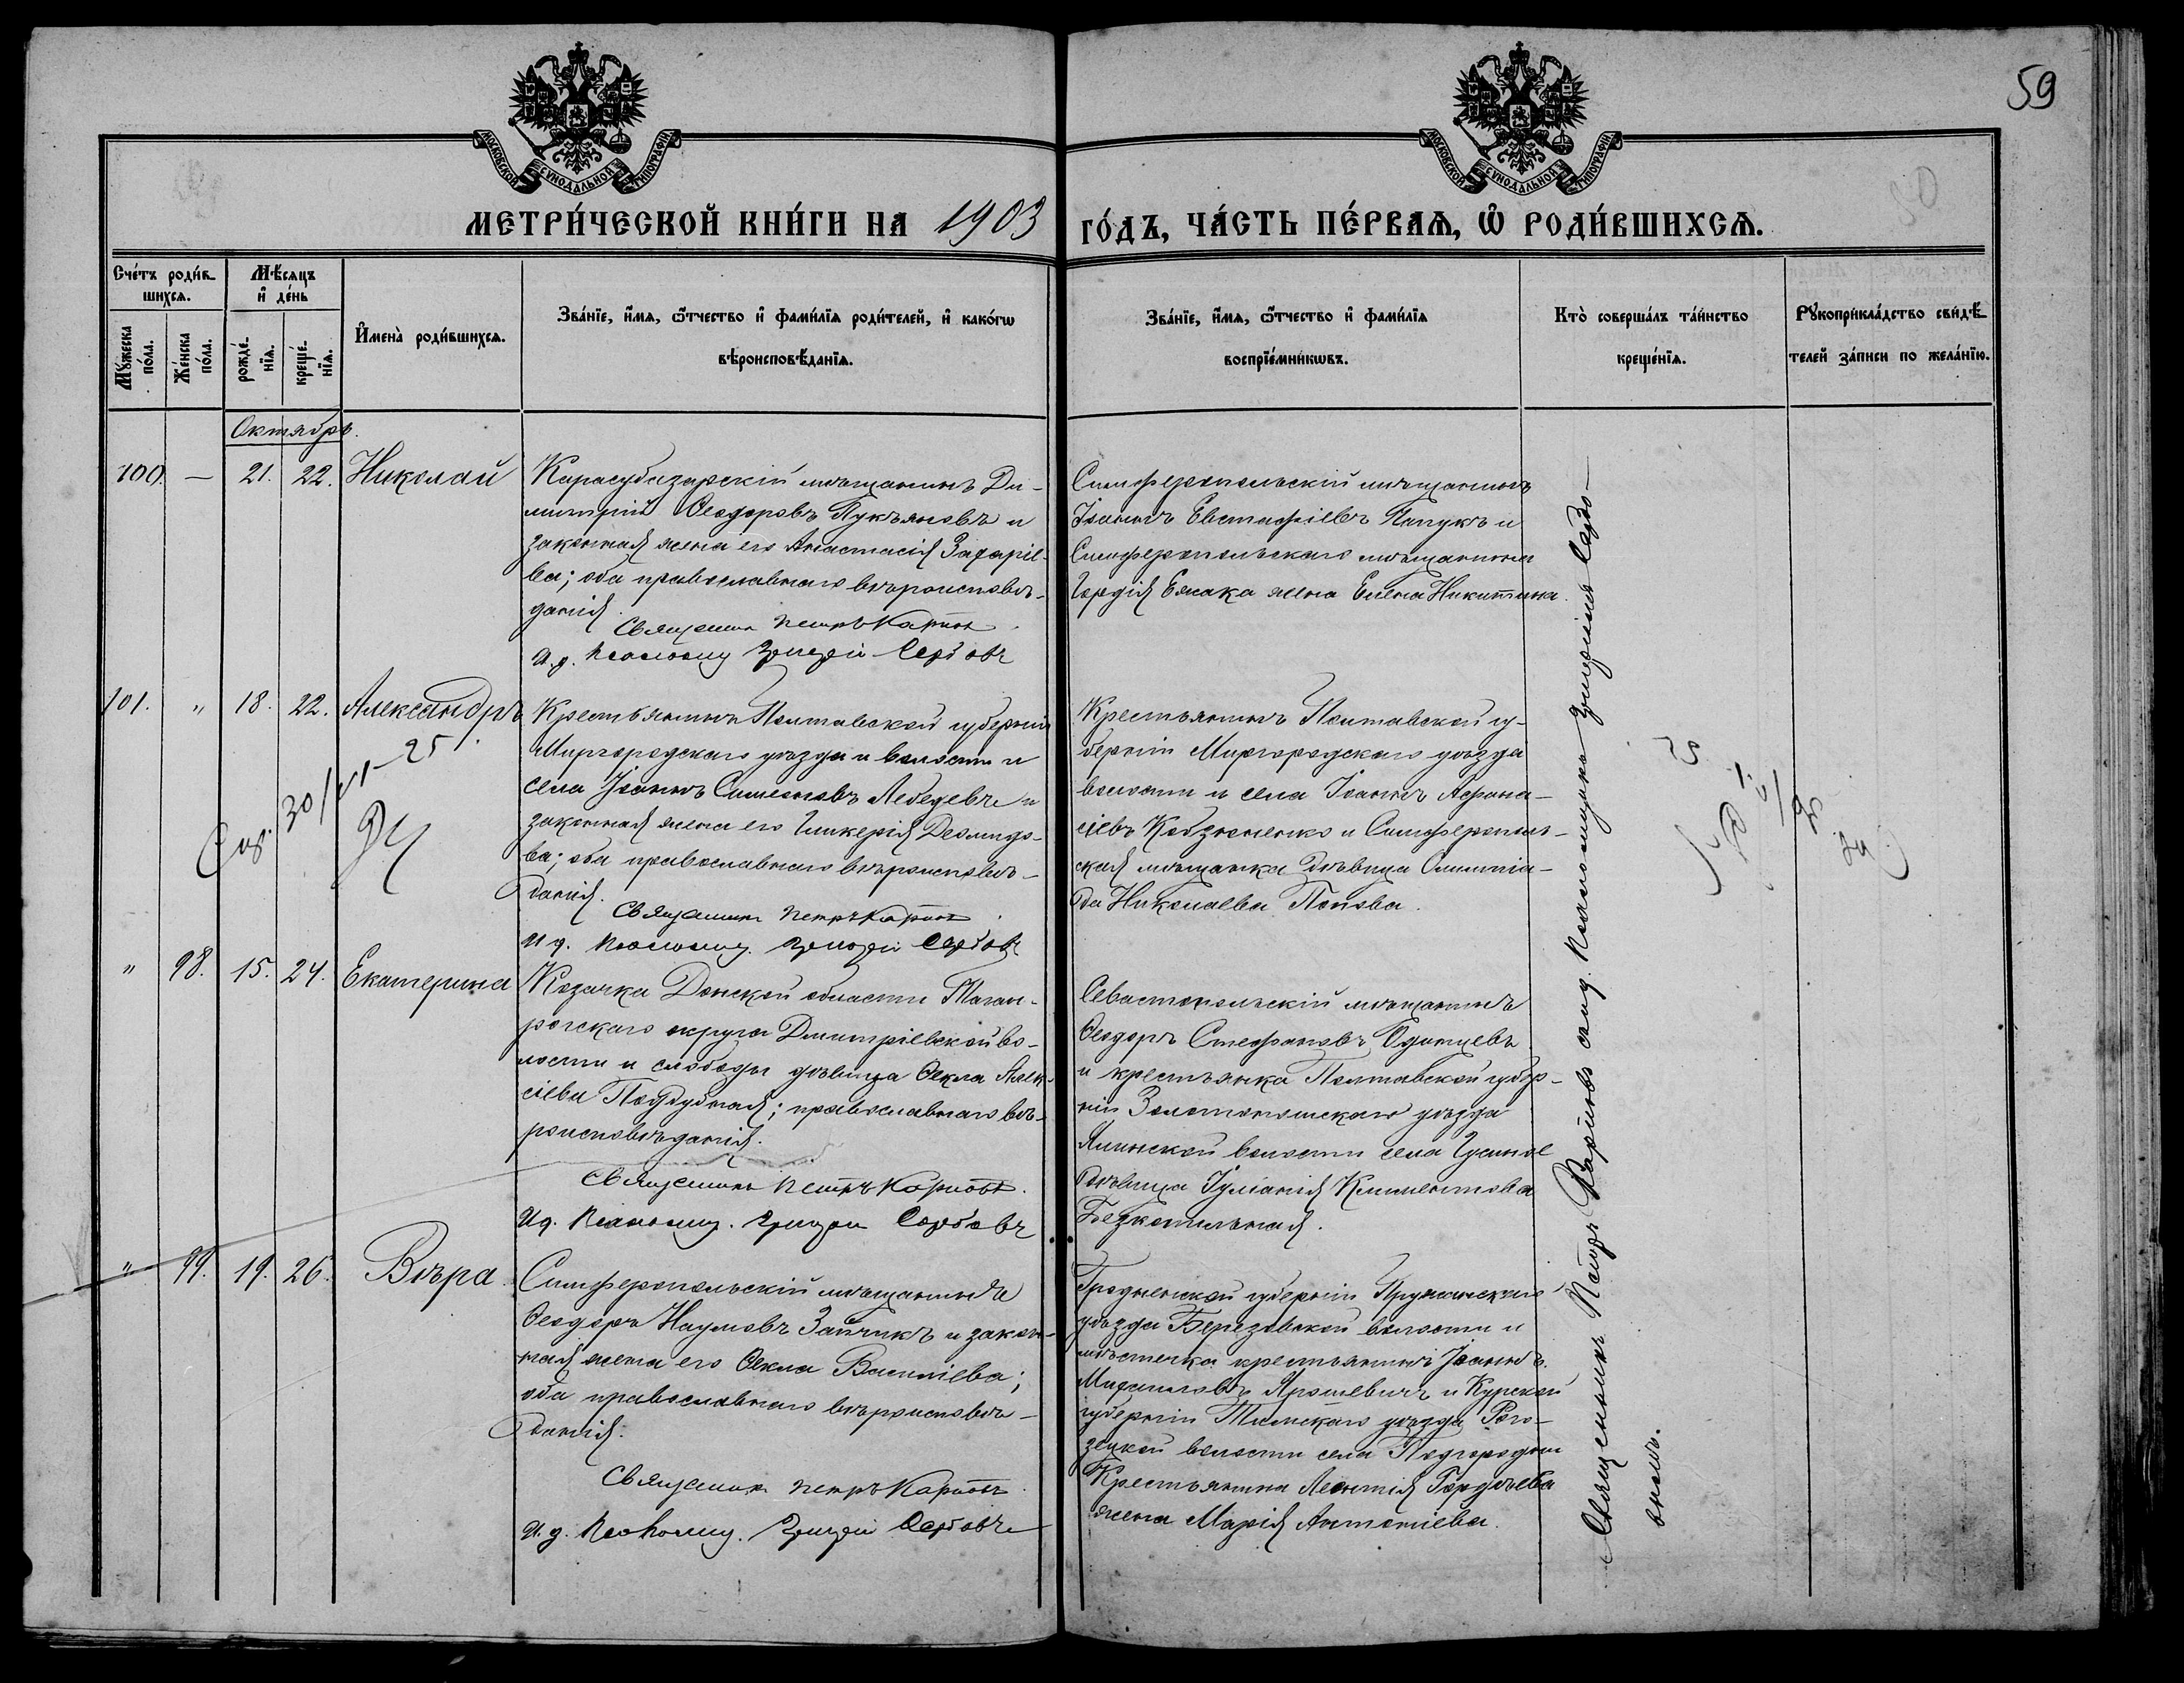 59
МОСКОВСКОЙ СѴНОДАЛЬНОЙ ТИПОГРАФІИ
МОСКОВСКОЙ СѴНОДАЛЬНОЙ ТИПОГРАФІИ
МЕТРИ́ЧЕСКОЙ КНИ́ГИ НА 1903 ГО́ДЪ, ЧА́СТЬ ПЕ́РВАѦ, Ѿ РОДИ́ВШИХСѦ.
Сче́тъ роди́в-
шихсѧ.
Мꙋ́жеска по́ла.
Же́нска по́ла.
Мѣ́сѧцъ
и҆ де́нь
рожде́-
нїѧ.
креще́-
нїѧ.
И҆мена̀ роди́вшихсѧ.
Зва́нїе, и҆́мѧ, ѻ҆́тчество и҆ фами́лїѧ роди́телей, и҆ како́гѡ
вѣроисповѣ́данїѧ.
Зва́нїе, и҆́мѧ, ѻ҆́тчество и҆ фами́лїѧ
воспрїе́мникѡвъ.
Кто̀ соверша́лъ та́инство
креще́нїѧ.
Рꙋкоприкла́дство свидѣ́-
телей за́писи по жела́нїю.
Октябрь.
100. — 21. 22. Николай
Карасубазарскій мѣщанинъ Ди-
митрій Ѳеодоровъ Лукьяновъ и
законная жена его Анастасія Захаріе-
ва; оба православнаго вѣроисповѣ-
данія.
Священник Петръ Карповъ.
И. д. псаломщ. Григорій Сербовъ
Симферопольскій мѣщанинъ
Іоаннъ Евстафіевъ Папукъ и
Симферопольскаго мѣщанина
Гордія Ежака жена Елена Никитина.
101. " 18. 22. Александръ
Крестьянинъ Полтавской губерніи
Миргородскаго уѣзда и волости и
села Іоаннъ Симеоновъ Лебедевъ и
законная жена его Гликерія Деомидо-
ва; оба православнаго вѣроисповѣ-
данія.
Священник Петръ Карповъ.
И д. псаломщ. Григорій Сербовъ
30/VI-25
Крестьянинъ Полтавской гу-
берніи Миргородскаго уѣзда
волости и села Іоаннъ Афана-
сіевъ Кобзюненко и Симферополь-
ская мѣщанка дѣвица Олимпіа-
да Николаева Попова.
" 98. 15. 24. Екатерина
Козачка Донской области Таган-
рогскаго округа Дмитріевской во-
лости и слободы дѣвица Ѳекла Алек-
сіева Поддубная; православнаго вѣ-
роисповѣданія.
Священникъ Петръ Карповъ.
И д. Псаломщ. Григорій Сербовъ
Севастопольскій мѣщанинъ
Ѳеодоръ Стефановъ Одинцевъ
и крестьянка Полтавской губер-
ніи Золотоношскаго уѣзда
волости села Гусиное
дѣвица Іуліанія Климентова
Безкотильная.
" 99. 19. 26. Вѣра
Симферопольскій мѣщанинъ
Ѳеодоръ Наумовъ Зайчикъ и закон-
ная жена его Ѳекла Василіева;
оба православнаго вѣроисповѣ-
данія.
Священник Петръ Карповъ.
И. д. псаломщ. Григорій Сербовъ
Гродненской губерніи Пружанскаго
уѣзда Березовской волости и
мѣстечка крестьянинъ Іоаннъ
Михаиловъ Ярошевичъ и Курской
губерніи Тимскаго уѣзда Рого-
зецкой волости села
Крестьянина Леонтія Гордѣева
жена Марія Антоніева.
Священникъ Петръ Карповъ съ и. д. псаломщика Григоріемъ Сербо-
вымъ.